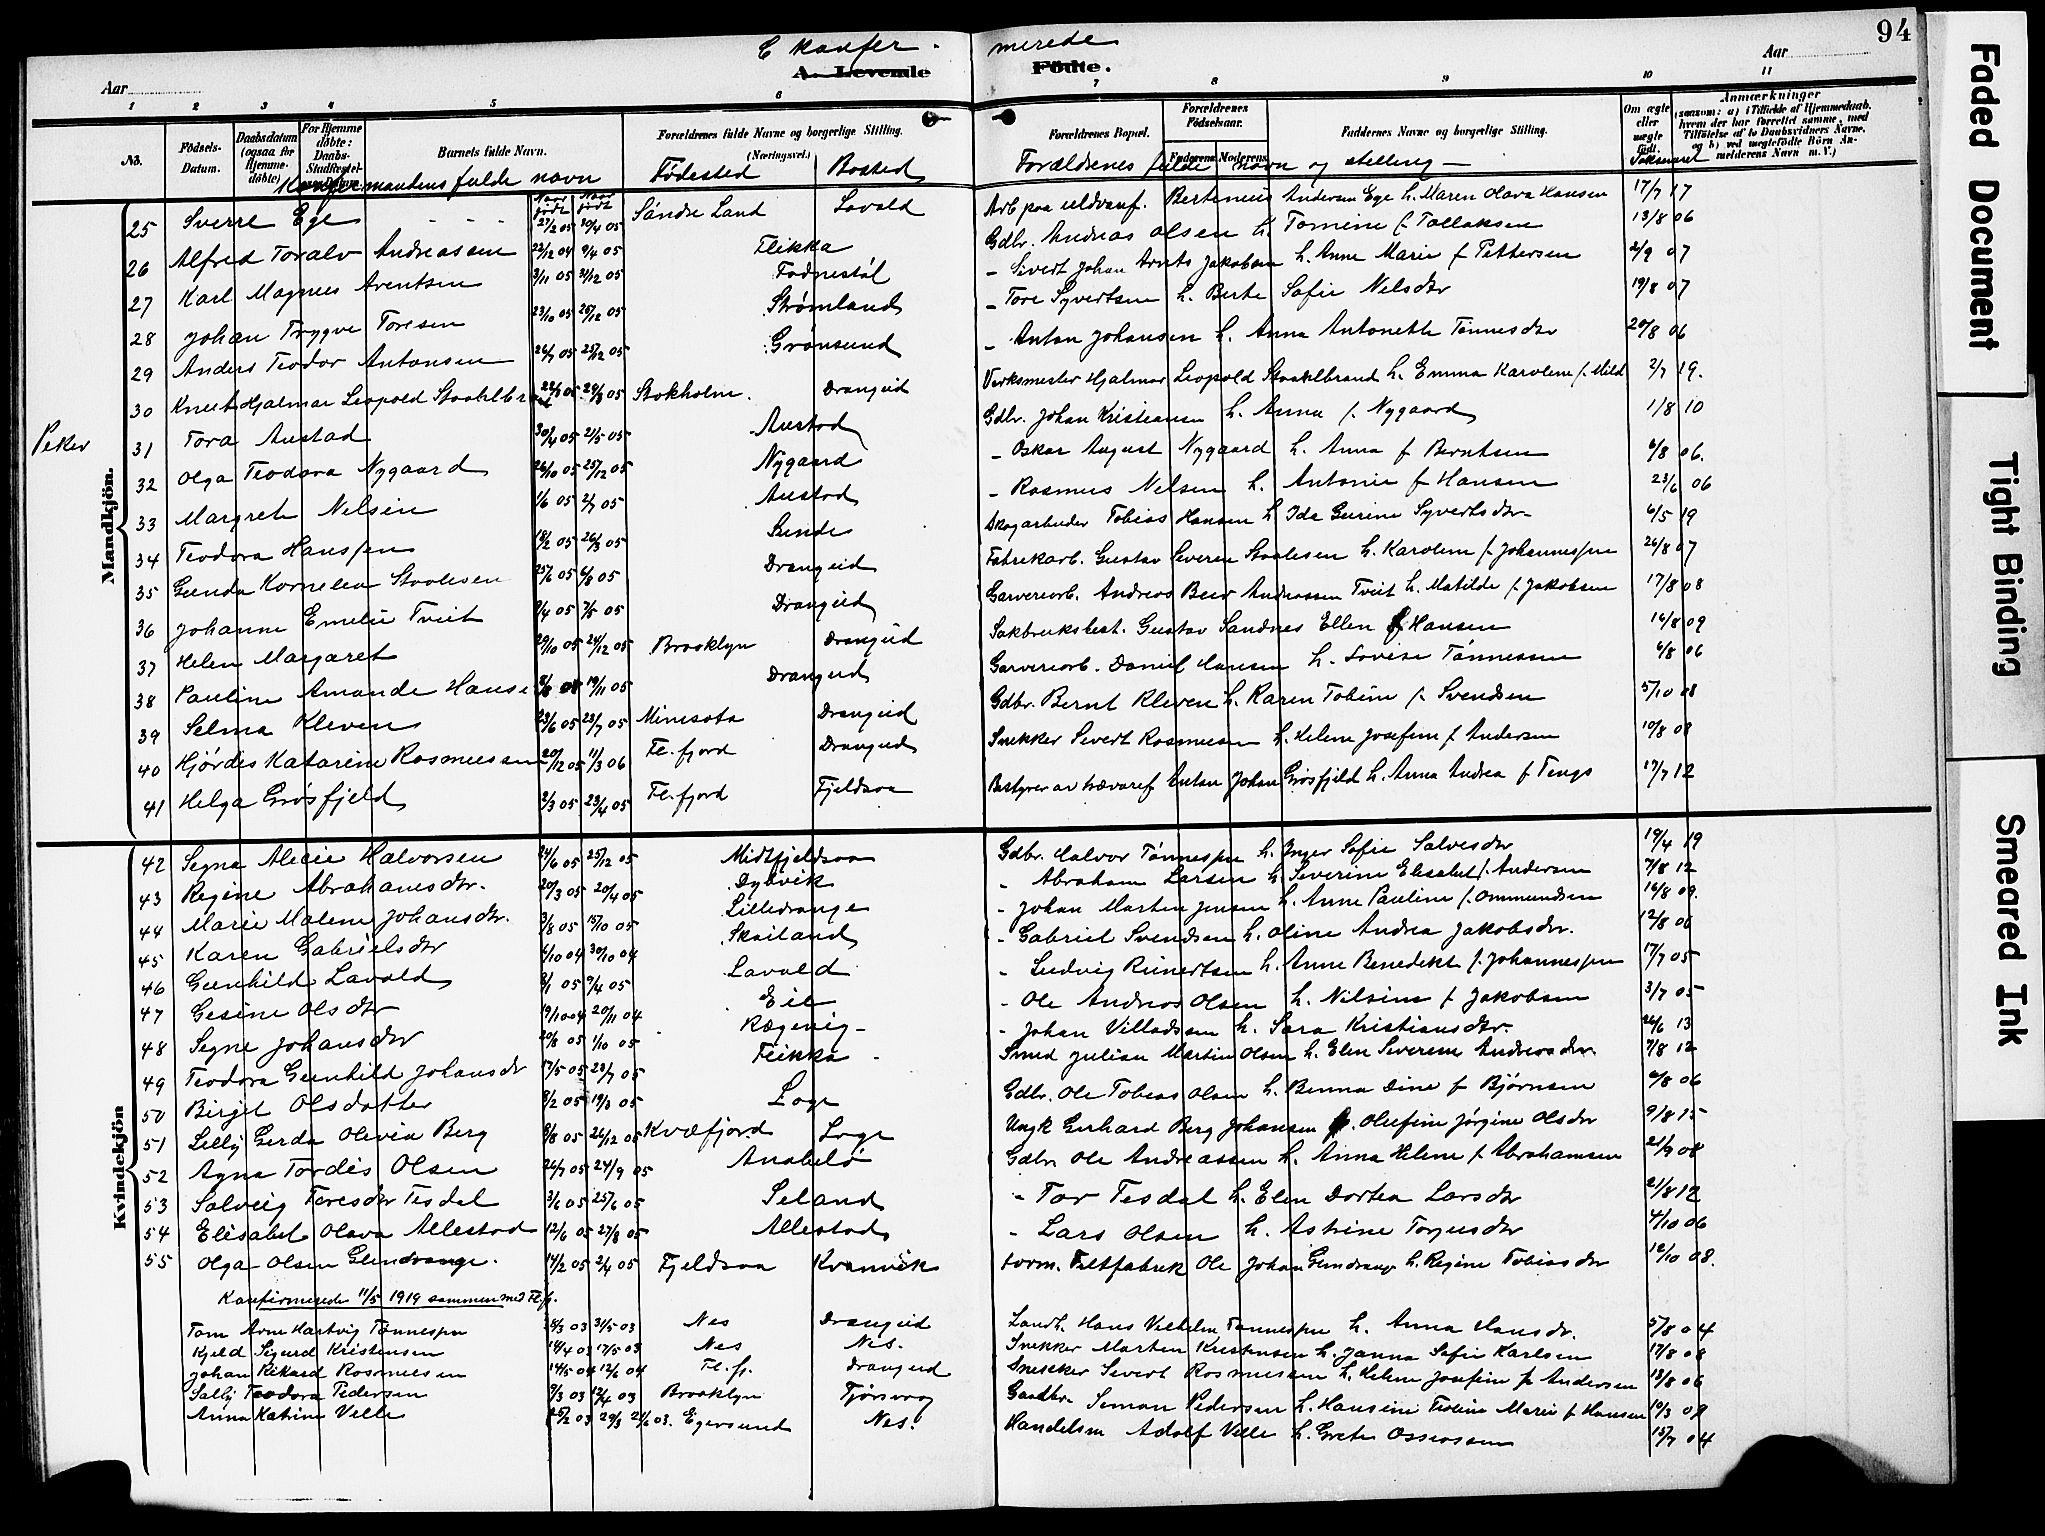 94
C Konfir- merede
A. Levende Födte.
Aar
Aar
1 2 3 4 5 6 7 8 9 10 11
No. Födsels-Datum. Daabsdatum (ogsaa for Hjemme-döbte) For Hjemme döbte: Daabs-Stadfæstel-sens Datum. Barnets fulde Navn. Forældrenes fulde Navne og borgerlige Stilling. (Næringsvei.) Forældrenes Bopæl. Forældrenes Födselsaar. Faderens Moderens Faddernes Navne og borgerlige Stilling. Om ægte eller uægte födt. Anmærkninger
(saasom: a) i Tilfælde af Hjemmedaab, hvem der har forrettet samme, med Tilföielse af to Daabsvidners Navne, og b) ved uægtefödte Börn Anmelderens Navn m. V.)
Konfirmandens fulde navn Naar født Naar døbt Fødested Bosted Forældrenes fulde navn og stilling - Vaksineret
Mandkjön.
25 Sverre Ege 27/2 05 30/4 05 Søndre Land Lavold Arb paa uldvaref. Bertinius Andersen Ege h. Maren Olava Hansen 17/7 17
26 Alfred Toralv Andreassen 22/12 04 9/4 05 Flikka Gdbr. Andreas Olsen h. Tomine f. Tollaksen 13/8 06
27 Karl Magnus Arentsen 3/11 05 31/12 05 Fodnestøl - Sivert Johan Arnts Jakobsen h. Anne Marie f Pettersen 2/9 07
28 Johan Trygve Toresen 23/10 05 26/12 05 Strømland - Tore Syvertsen h. Berte Sofie Nelsdtr 19/8 07
29 Anders Teodor Antonsen 26/7 05 25/12 05 Grønsund - Anton Johansen h. Anna Antonette Tønnesdtr 20/8 06
30 Knut Hjalmar Leopold Staalbrand 22/1 05 24/3 05 Stokholm. Drangeid Verksmester Hjalmar Leopold Staalbrand h. Emma Karoline f. Mild 2/7 19.
Piker
31 Tora Austad 30/4 05 21/5 05 Austad Gdbr. Johan Kristiansen h. Anna f. Nygaard 1/8 10
32 Olga Teodora Nygaard 26/10 05 25/12 05 Nygaard - Oskar August Nygaard h. Anna f Berntsen 6/8 06.
33 Margret Nelsen 1/6 05 2/7 05 Austad - Rasmus Nelsen h. Antonie f Hansen 23/6 06
34 Teodora Hanssen 18/2 05 26/3 05 Sunde Skogarbeider Tobias Hansen h Ida Gurine Syvertsdtr 6/5 19
35 Gunda Kornelia Staalesen 25/6 05 6/8 05 Drangeid Fabrikarb. Gustav Severin Staalesen h. Karoline f. Johannessen 26/8 07
36 Johanne Emelie Tveit 9/4 05 7/5 05 Drangeid Garveriarb. Andreas Beer Andreassen Tveit h. Matilde f. Jakobsen 17/8 08
37 Helen Margaret 29/10 05 24/12 05 Brooklyn Drangeid Sakbruksbest. Gustav Sandnes Ellen f Hansen 16/8 09
38 Pauline Amanda Hanse 19/11 05 Drangeid Garveriarb. Daniel Hansen h. Lovise Tønnessen 6/8 06
39 Selma Kleven 23/6 05 23/7 05 Minesota Drangeid Gdbr. Bernt Kleven h. Karen Tobine f. Svendsen 5/10 08
40 Hjørdis Katarine Rasmussen 20/12 05 11/3 06 Fl.fjord Drangeid Snekker Sivert Rasmussen h. Helene Josefine f Andersen 10/8 08
41 Helga Grøsfjeld 2/3 05 23/4 05 Fl.fjord Fjeldsaa Bestyrer av trævaref Anton Johan Grøsfjeld h. Anna Andrea f Tengs 17/7 12
Kvindekjön
42 Segna Alecie Halvorsen 24/6 05 25/12 05 Midtfjeldsaa Gdbr. Halvor Tønnessen h. Inger Sofie Salvesdtr 19/4 19
43 Regine Abrahamsdtr. 20/3 05 20/4 05 Dybvik - Abraham Larsen h. Severine Elisabet f. Andersen 7/8 12
44 Marie Malene Johansdtr. 3/8 05 15/10 05 Lilledrange - Johan Marten Jensen h. Anne Pauline f. Ommundsen 16/8 09.
45 Karen Gabrielsdtr 6/10 04 30/10 04 Skailand - Gabriel Svendsen h. Oline Andrea Jakobsdtr. 12/8 06
46 Gunhild Lavold 8/1 05 9/4 05 Lavold - Ludvig Reinertsen h. Anne Benedikt f. Johannessen 17/7 05
47 Gesine Olsdtr 19/10 04 20/11 04 Eie - Ole Andreas Olsen h. Nilsine f Jakobsen 3/7 05
48 Segne Johansdtr 20/8 05 1/10 05 Rægevig - Johan Villadssen h. Sara Kristiansdtr. 26/6 13
49 Teodora Gunhild Johansdtr 17/5 05 23/7 05 Flikka Smed Julian Martin Olsen h. Elen Severine Andreasdtr. 7/8 12
50 Birgit Olsdatter 8/2 05 19/3 05 Loge Gdbr. Ole Tobias Olsen h. Benna Dine f Bjørnsen 6/8 06
51 Lilly Gerda Olivia Berg 8/8 05 26/12 05 Kvæfjord Loge Ungk Gerhard Berg Johansen p. Olufine Jørgine Olsdtr 9/8 15
52 Agna Tordis Olsen 26/7 05 24/9 05 Anabelø Gdbr Ole Andreassen h. Anna Helene f. Abrahamsen 21/9 08
53 Solveig Toresdtr Tesdal 3/6 05 25/6 05 Seland - Tor Tesdal h. Elen Dortea Larsdtr 21/8 12
54 Elisabet Olava Allestad 12/6 05 27/8 05 Allestad - Lars Olsen h. Astrine Torgusdtr 4/10 06
55 Olga Olsen Glendrange. 14/2 05 2/4 05 Fjeldsaa Kvanvik form. Feltfabrik Ole Johan Glendrange h. Regine Tobiasdtr 12/10 08.
Konfirmerede 11/5 1919 sammen med Fl.fj.
Tom Arne Hartvig Tønnessen 18/3 03 31/5 03 Nes Drangeid Landh. Hans Vilhelm Tønnessen h. Anna Hansdtr. 5/8 04
Kjeld Sigurd Kristensen 14/4 03 17/5 03 Nes Nes. Snekker Marten Kristensen h. Janna Sofie Karlsen 17/8 08
Johan Rikard Rasmussen 14/5 04 12/6 04 Fl.fj. Drangeid Snekker Sivert Rasmussen h. Helene Josefine f. Andersen 13/8 06
Sally Teodora Pedersen 9/3 03 12/4 03 Brooklyn Tjørsvaag Gaardbr. Simon Pedersen h. Hansine Tobine Marie f Hansen 10/3 09
Anna Katrine Velle 15/2 03 29/3 03. Egersund Nes. Handelsm Adolf Velle h. Grete Osseassen 15/7 04
Faded Document
Tight Binding
Smeared Ink